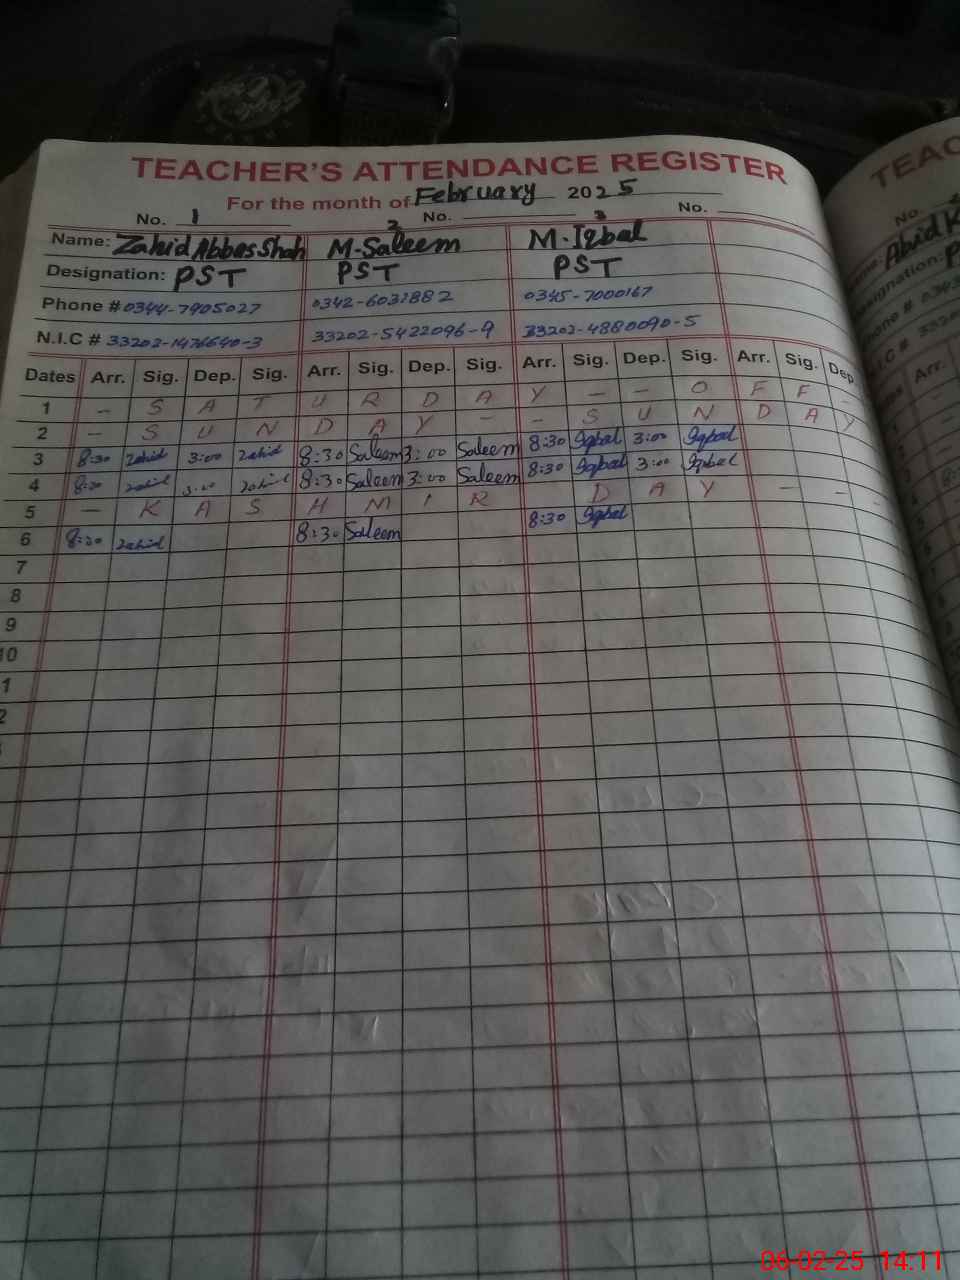 TEACHER'S ATTENDANCE REGISTER
For the month of February 2025
No. 1 2 No. 3 No.
Name: Zahid Abbas Shah M-Saleem M.Iqbal
Designation: PST PST PST
Phone # 0344-7905027 0342-6031882 0345-7000167
N.I.C # 33202-1476640-3 33202-5422096-9 33202-4880090-5
Dates Arr. Sig. Dep. Sig. Arr. Sig. Dep. Sig. Arr. Sig. Dep. Sig. Arr. Sig. Dep.
1 - S A T U R D A Y - - O F F -
2 - S U N D A Y - - S U N D A Y
3 8:30 Zahid 3:00 Zahid 8:30 Saleem 3:00 Saleem 8:30 Iqbal 3:00 Iqbal
4 8:30 Zahid 3:00 Zahid 8:30 Saleem 3:00 Saleem 8:30 Iqbal 3:00 Iqbal
5 - K A S H M I R D A Y - - -
6 8:30 Zahid 8:30 Saleem 8:30 Iqbal
7
8
9
10
1
2
TEAC
No.
Abid K
signation: P
one # 0343
I.C # 33202
Arr.
06-02-25 14:11